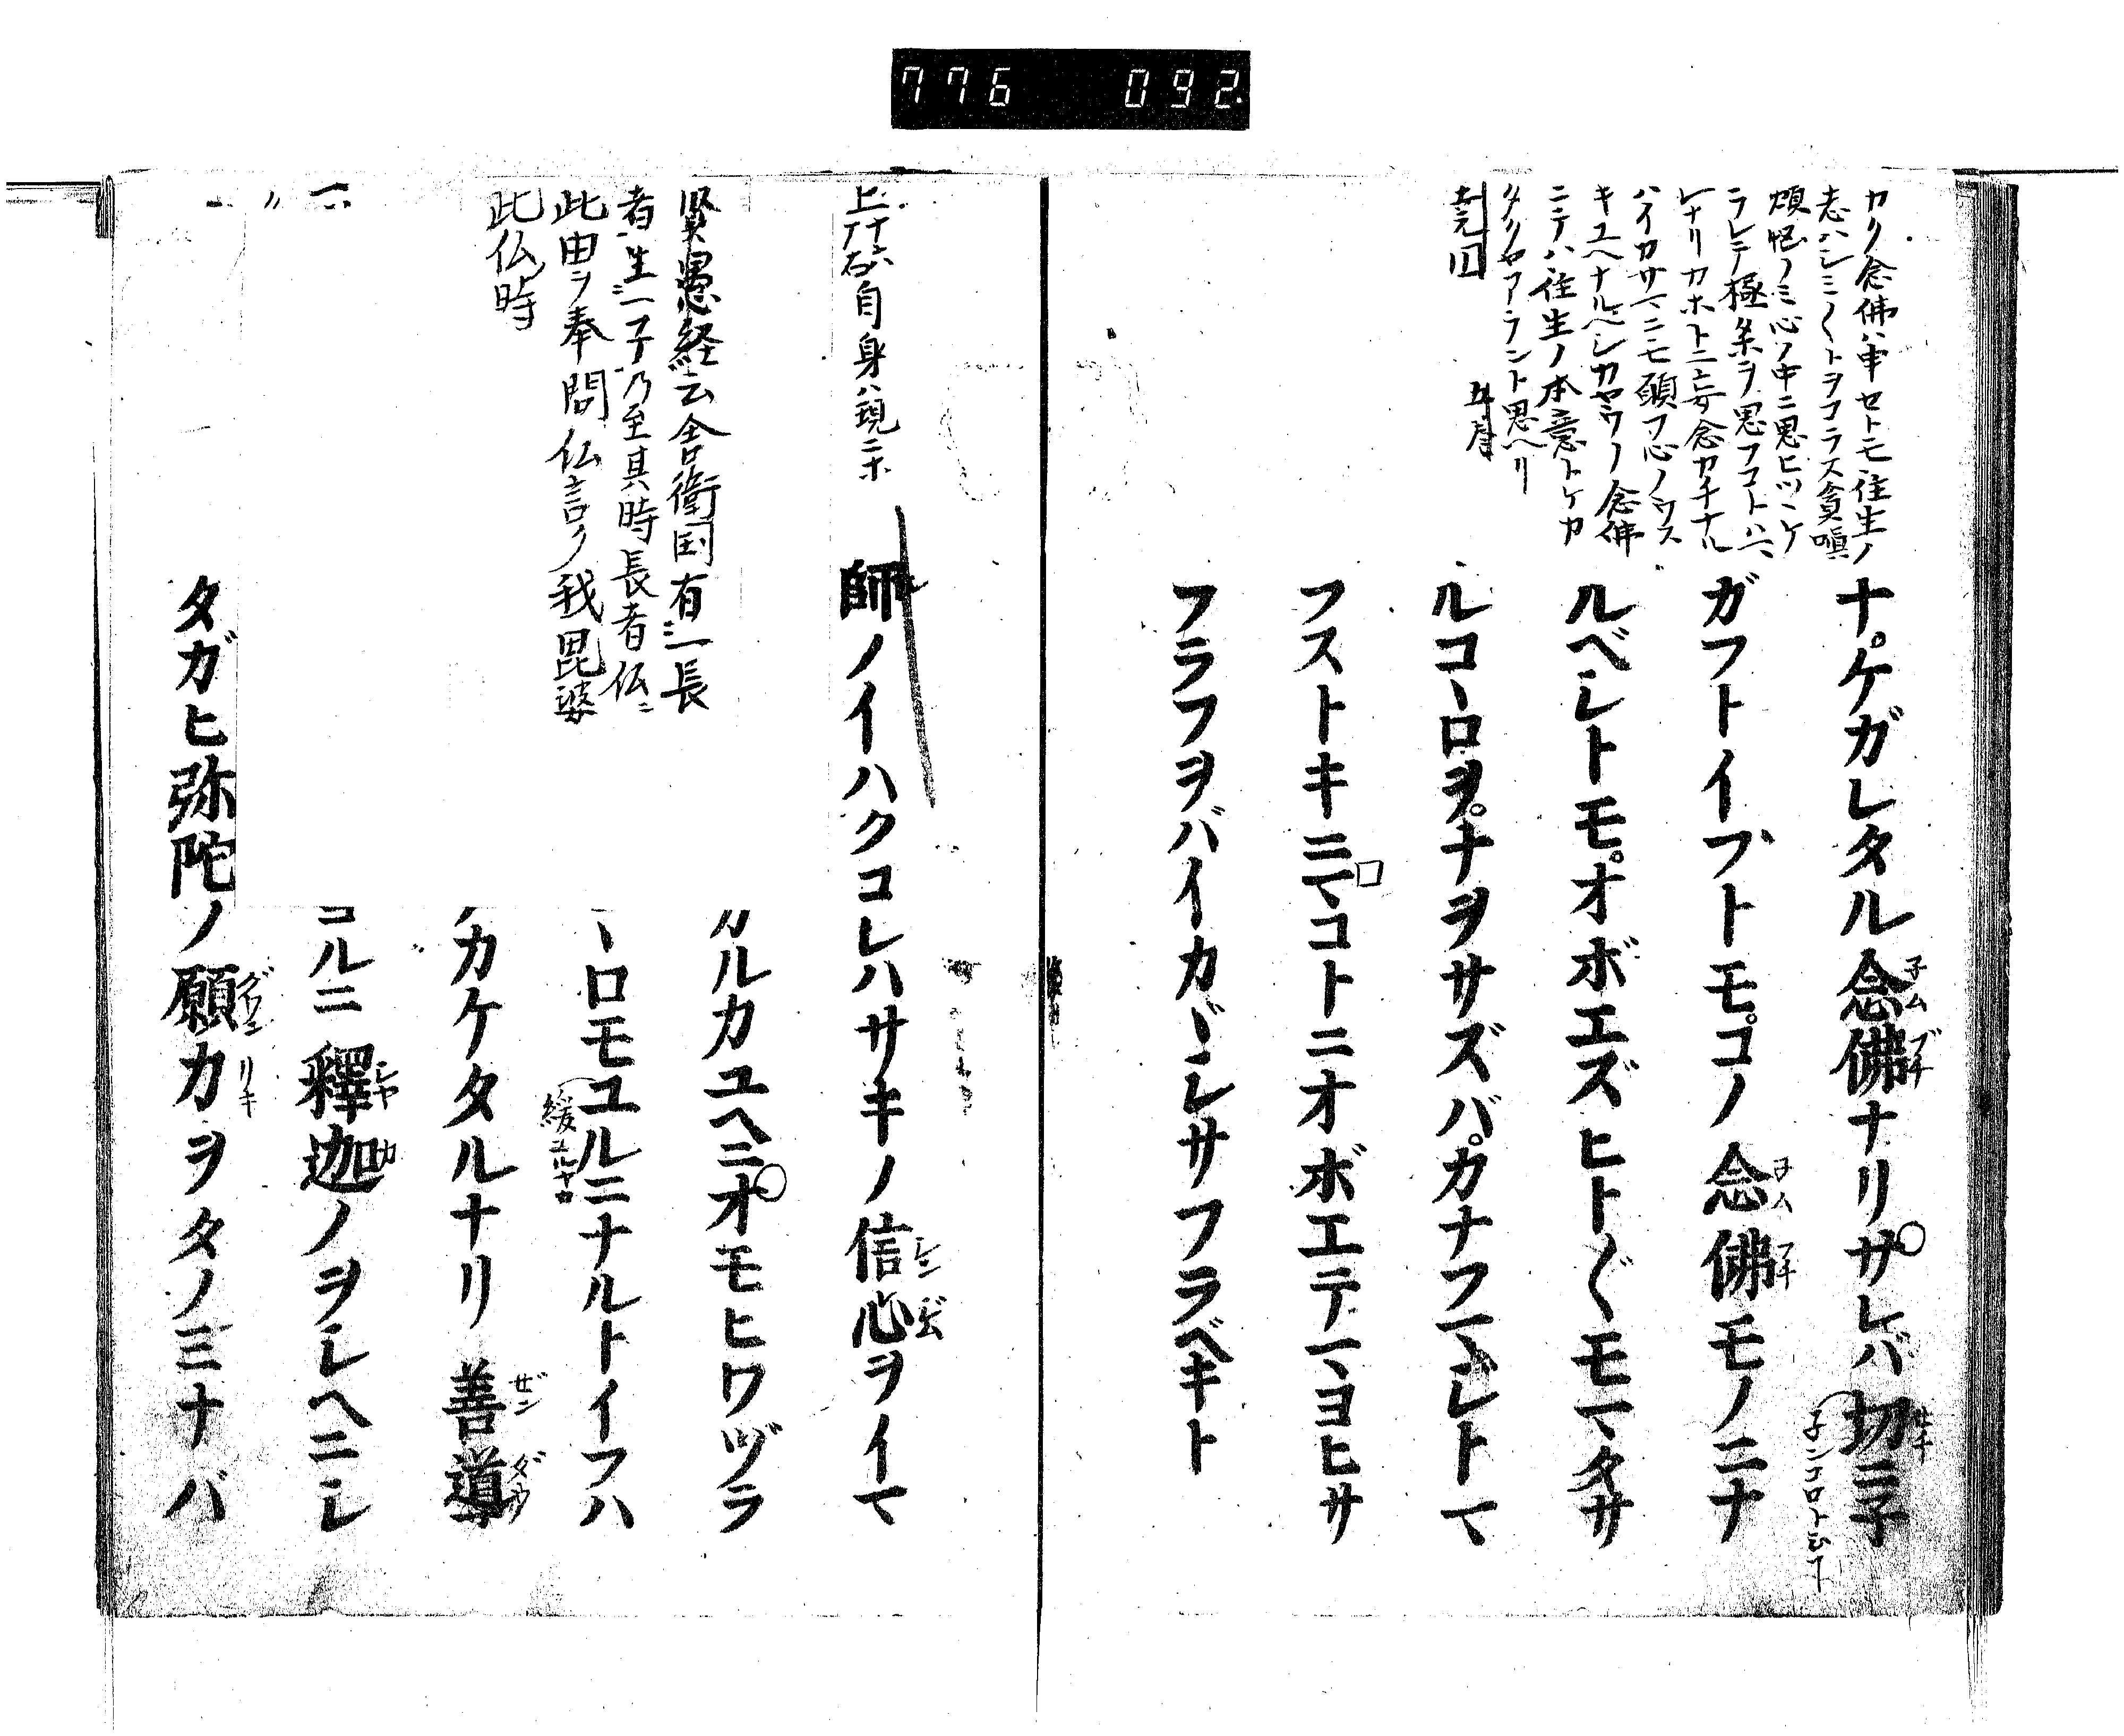 776 092
カク念佛ハ申セトモ往生ノ
志ハシミ〱トヲコラス貪嗔
煩悩ノミ心ノ中ニ思ヒツヽケ
ラレテ極楽ヲ思フコトハマ
レナリカホトニ妄念カチナル
ハイカサマニモ願フ心ノウス
キユヘナルヘシカヤウノ念佛
ニテハ往生ノ本意トケカ
タクヤアラント思ヘリ
ナケガレタル念佛ナリサレバ切ニネ
ネンコロト
ガフトイフトモコノ念佛モノニナ
ルベシトモオボエズヒト〲モマタサ
ルコヽロヲナヲサズバカナフマジトマ
フストキニマコトニオボエテマヨヒサ
フラフヲバイカヾシサフラフベキト
自身ハ現ニ
師ノイハクコレハサキノ信心ヲイマ
賢愚経云舎衛国有一長
者生一子乃至其時長者仏ニ
此由ヲ奉問仏言ク我毘婆
此仏時
カルカユヘニオモヒワヅラ
ヽロモユルニナルトイフハ
緩
カケタルナリ善導
コルニ釋迦ノヲシヘニシ
タガヒ弥陀ノ願力ヲタノミナバ